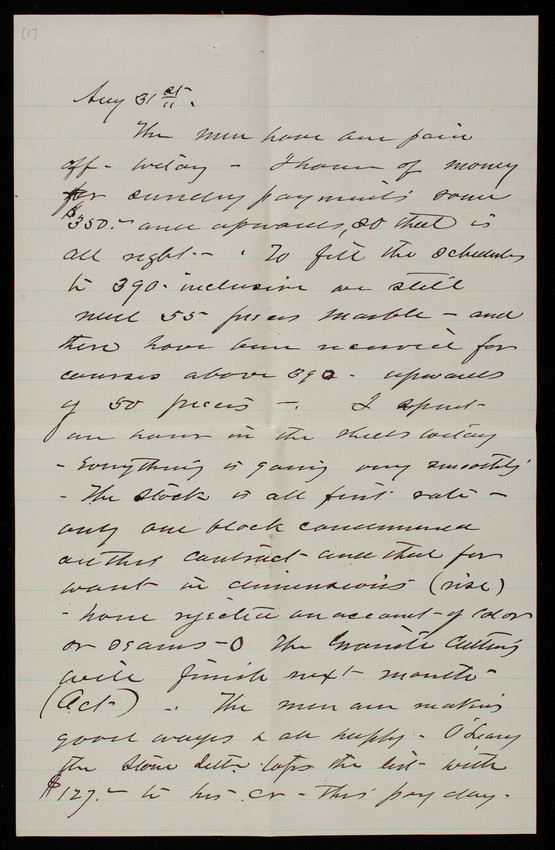 [1]
Aug 31st.
The men have are paid
off - today - I have of money
for sundry payments some
$350.- and upwards, so that is
all right - . To fill the schedules
to 390 - inclusive we still
need 55 pieces marble - and
there have been received for
courses above 390 - upwards
of 50 pieces - . I spent
an hour in the sheds today
- Everything is going very smoothly
- The stock is all first rate -
only one block condemned
on this contract - and that for
want in dimensions (rise)
- none rejected on account of color
or seams - The Granite Cutting
will finish next month
(Oct -) - . The men are making
good wages & all happy - O'Leary
the Stone Setter tops the list with
$129.- to his cr - this pay day -